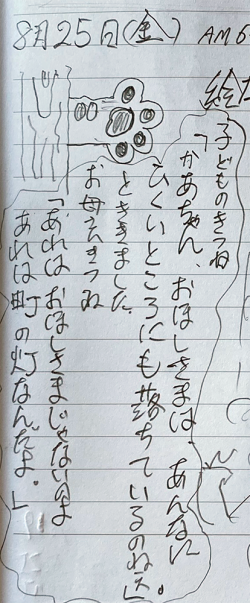 8月25日(金) AM6
絵
子どものきつね
「かあちゃん、おほしさまは、あんなに
ひくいところにも落ちているのねえ」。
とききました。
お母さんきつね
「あれはおほしさまじゃないのよ
あれは町の灯なんだよ。」